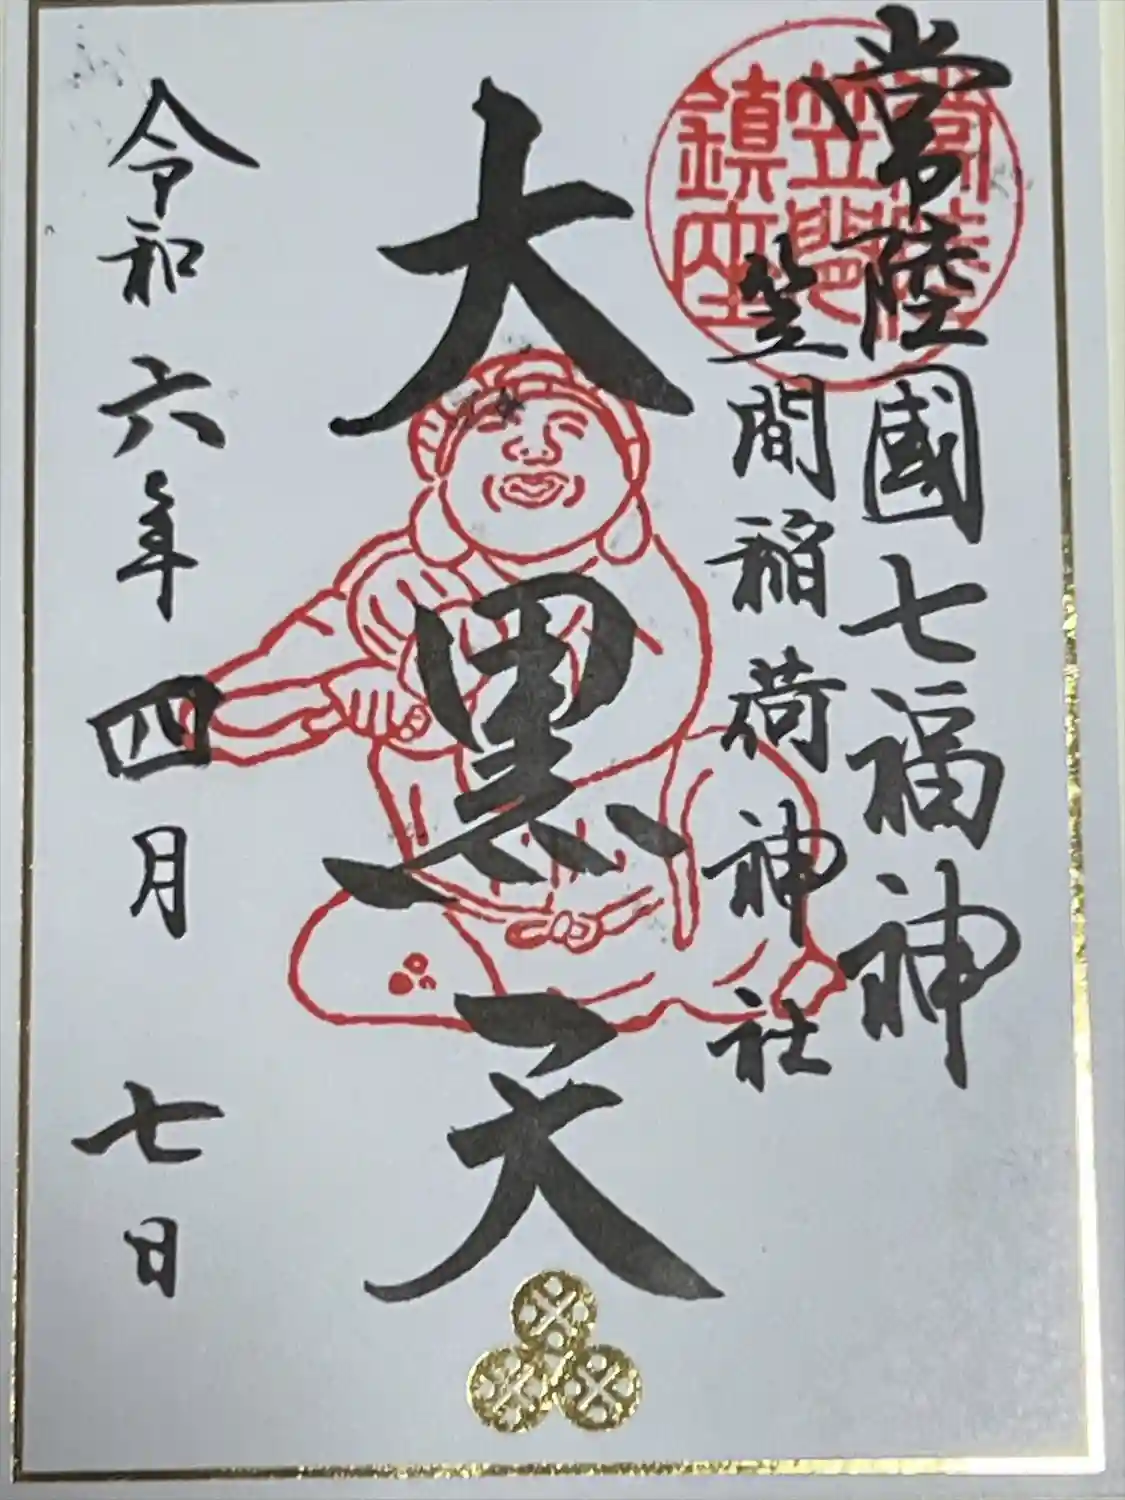 常陸國七福神
笠間稲荷神社
大黒天
令和六年四月七日
常陸
笠間
鎮座